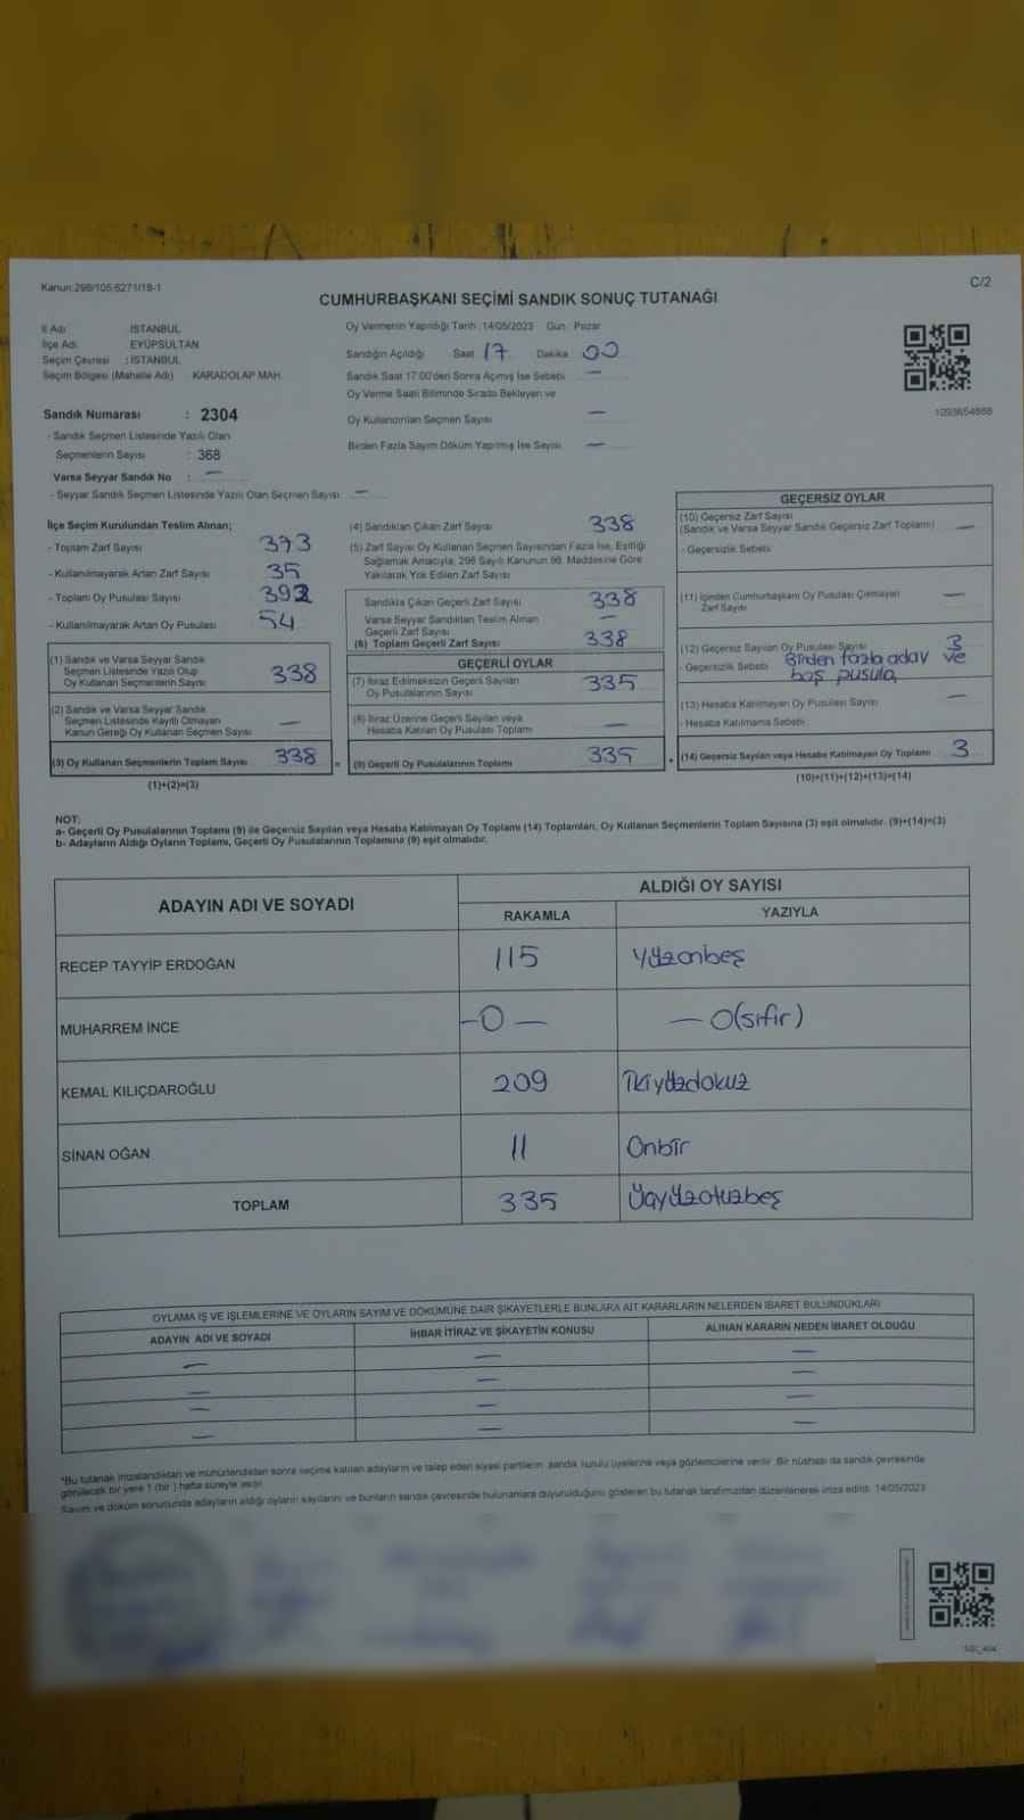 Kanun:298/105-6271/18-1
C/2
CUMHURBAŞKANI SEÇİMİ SANDIK SONUÇ TUTANAĞI
İl Adı : İSTANBUL
İlçe Adı : EYÜPSULTAN
Seçim Çevresi : İSTANBUL
Seçim Bölgesi (Mahalle Adı) KARADOLAP MAH.
Oy Vermenin Yapıldığı Tarih :14/05/2023 Gün : Pazar
Sandığın Açıldığı Saat 17 Dakika 00
Sandık Saat 17:00'den Sonra Açılmış İse Sebebi —
Oy Verme Saati Bitiminde Sırada Bekleyen ve
Oy Kullandırılan Seçmen Sayısı —
Birden Fazla Sayım Döküm Yapılmış İse Sayısı —
Sandık Numarası : 2304
- Sandık Seçmen Listesinde Yazılı Olan
Seçmenlerin Sayısı : 368
Varsa Seyyar Sandık No : —
- Seyyar Sandık Seçmen Listesinde Yazılı Olan Seçmen Sayısı —
İlçe Seçim Kurulundan Teslim Alınan;
- Toplam Zarf Sayısı 373
- Kullanılmayarak Artan Zarf Sayısı 35
- Toplam Oy Pusulası Sayısı 392
- Kullanılmayarak Artan Oy Pusulası 54
(1) Sandık ve Varsa Seyyar Sandık
Seçmen Listesinde Yazılı Olup
Oy Kullanan Seçmenlerin Sayısı 338
(2) Sandık ve Varsa Seyyar Sandık
Seçmen Listesinde Kayıtlı Olmayan
Kanun Gereği Oy Kullanan Seçmen Sayısı —
(3) Oy Kullanan Seçmenlerin Toplam Sayısı 338
(1)+(2)=(3)
(4) Sandıktan Çıkan Zarf Sayısı 338
(5) Zarf Sayısı Oy Kullanan Seçmen Sayısından Fazla İse, Eşitliği
Sağlamak Amacıyla, 298 Sayılı Kanunun 98. Maddesine Göre
Yakılarak Yok Edilen Zarf Sayısı
Sandıkta Çıkan Geçerli Zarf Sayısı 338
Varsa Seyyar Sandıktan Teslim Alınan
Geçerli Zarf Sayısı —
(6) Toplam Geçerli Zarf Sayısı 338
GEÇERLİ OYLAR
(7) İtiraz Edilmeksizin Geçerli Sayılan
Oy Pusulalarının Sayısı 335
(8) İtiraz Üzerine Geçerli Sayılan veya
Hesaba Katılan Oy Pusulası Toplamı —
(9) Geçerli Oy Pusulalarının Toplamı 335
GEÇERSİZ OYLAR
(10) Geçersiz Zarf Sayısı
(Sandık ve Varsa Seyyar Sandık Geçersiz Zarf Toplamı) —
- Geçersizlik Sebebi
(11) İçinden Cumhurbaşkanı Oy Pusulası Çıkmayan
Zarf Sayısı —
(12) Geçersiz Sayılan Oy Pusulası Sayısı 3
- Geçersizlik Sebebi Birden fazla aday ve
boş pusula
(13) Hesaba Katılmayan Oy Pusulası Sayısı —
- Hesaba Katılmama Sebebi
(14) Geçersiz Sayılan veya Hesaba Katılmayan Oy Toplamı 3
(10)+(11)+(12)+(13)=(14)
NOT:
a- Geçerli Oy Pusulalarının Toplamı (9) ile Geçersiz Sayılan veya Hesaba Katılmayan Oy Toplamı (14) Toplamları, Oy Kullanan Seçmenlerin Toplam Sayısına (3) eşit olmalıdır. (9)+(14)=(3)
b- Adayların Aldığı Oyların Toplamı, Geçerli Oy Pusulalarının Toplamına (9) eşit olmalıdır.
ADAYIN ADI VE SOYADI
ALDIĞI OY SAYISI
RAKAMLA YAZIYLA
RECEP TAYYİP ERDOĞAN 115 Yüzonbeş
MUHARREM İNCE -0 — — 0(sıfır)
KEMAL KILIÇDAROĞLU 209 İkiyüzdokuz
SİNAN OĞAN 11 Onbir
TOPLAM 335 Üçyüzotuzbeş
OYLAMA İŞ VE İŞLEMLERİNE VE OYLARIN SAYIM VE DÖKÜMÜNE DAİR ŞİKAYETLERLE BUNLARA AİT KARARLARIN NELERDEN İBARET BULUNDUKLARI
ADAYIN ADI VE SOYADI İHBAR İTİRAZ VE ŞİKAYETİN KONUSU ALINAN KARARIN NEDEN İBARET OLDUĞU
— — —
— — —
— — —
— — —
*Bu tutanak imzalandıktan ve mühürlendikten sonra seçime katılan adayların ve talep eden siyasi partilerin sandık kurulu üyelerine veya gözlemcilerine verilir. Bir nüshası da sandık çevresinde
görülecek bir yere 1 (bir) hafta süreyle asılır.
Sayım ve döküm sonucunda adayların aldığı oyların sayılarını ve bunların sandık çevresinde bulunanlara duyurulduğunu gösteren bu tutanak tarafımızdan düzenlenerek imza edildi. 14/05/2023